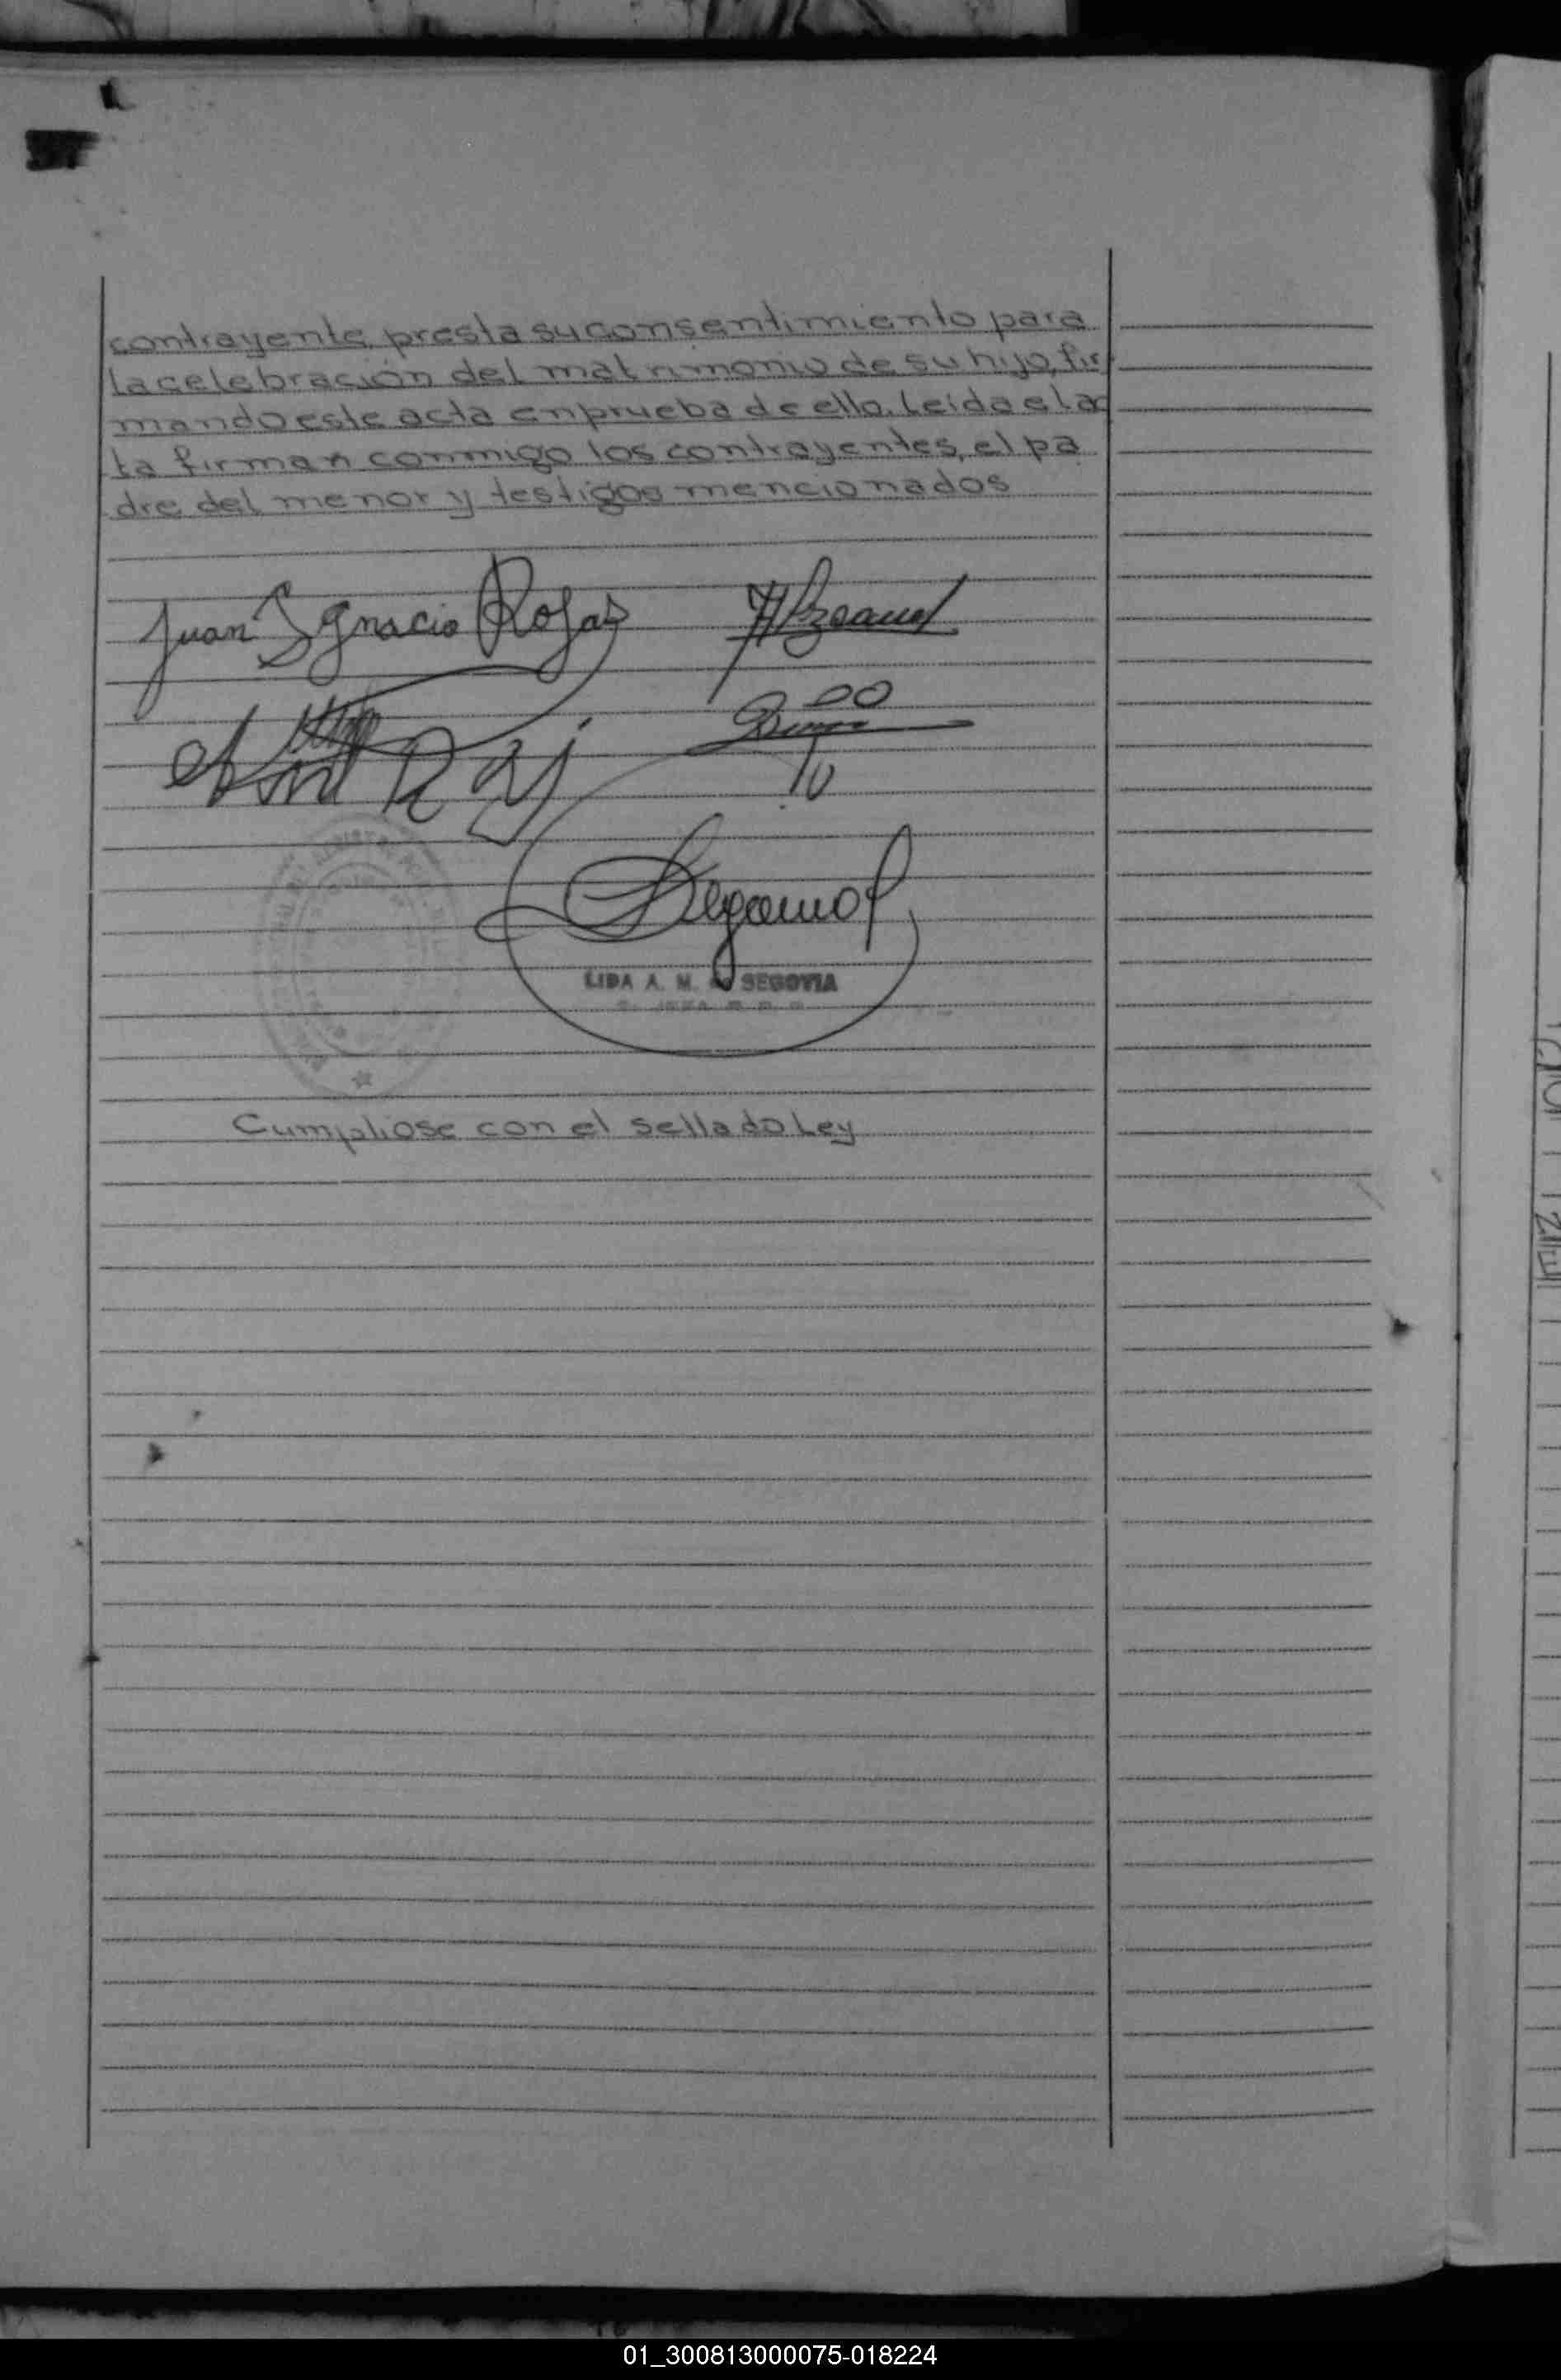 contrayente, presta su consentimiento para
la celebración del matrimonio de su hijo, fir
mando este acta en prueba de ello. Leída el ac
ta firman conmigo los contrayentes, el pa
dre del menor y testigos mencionados
Juan Ignacio Rojas
LIDA A. M. SEGOVIA
Cumpliose con el sellado Ley
01_300813000075-018224